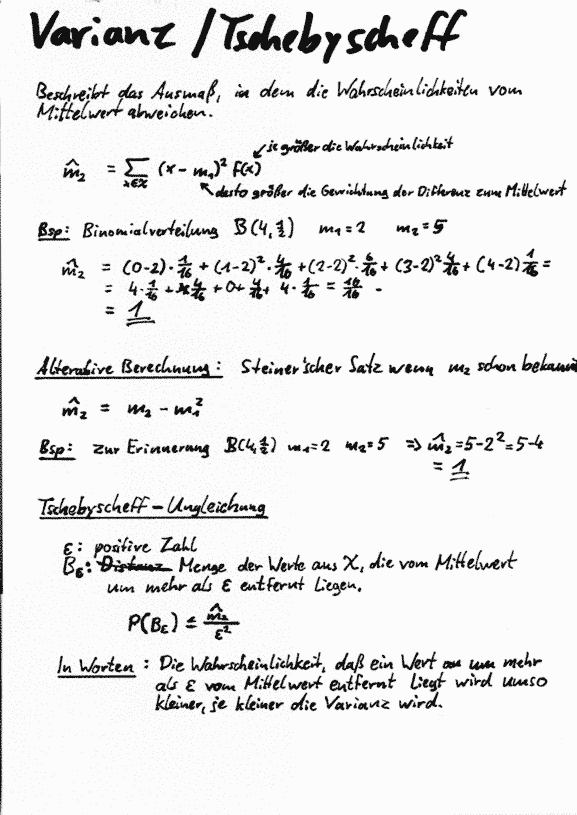 Varianz / Tschebyscheff
Beschreibt das Ausmaß, in dem die Wahrscheinlichkeiten vom
Mittelwert abweichen.
je größer die Wahrscheinlichkeit
m̂₂ = ∑ₓ∈X (x - m₁)² f(x)
desto größer die Gewichtung der Differenz zum Mittelwert
Bsp: Binomialverteilung B(4, 1/2) m₁=2 m₂=5
m̂₂ = (0-2)·1/16 + (1-2)²·4/16 + (2-2)²·6/16 + (3-2)² 4/16 + (4-2) 1/16 =
= 4·1/16 + 4/16 + 0 + 4/16 + 4·1/16 = 16/16
= 1
Alterative Berechnung: Steiner'scher Satz wenn m₂ schon bekannt
m̂₂ = m₂ - m₁²
Bsp: zur Erinnerung B(4, 1/2) m₁=2 m₂=5 => m̂₂=5-2²=5-4
= 1
Tschebyscheff-Ungleichung
ε: positive Zahl
Bε: Distanz Menge der Werte aus X, die vom Mittelwert
um mehr als ε entfernt liegen.
P(Bε) ≤ m̂₂/ε²
In Worten: Die Wahrscheinlichkeit, daß ein Wert um mehr
als ε vom Mittelwert entfernt liegt wird umso
kleiner, je kleiner die Varianz wird.